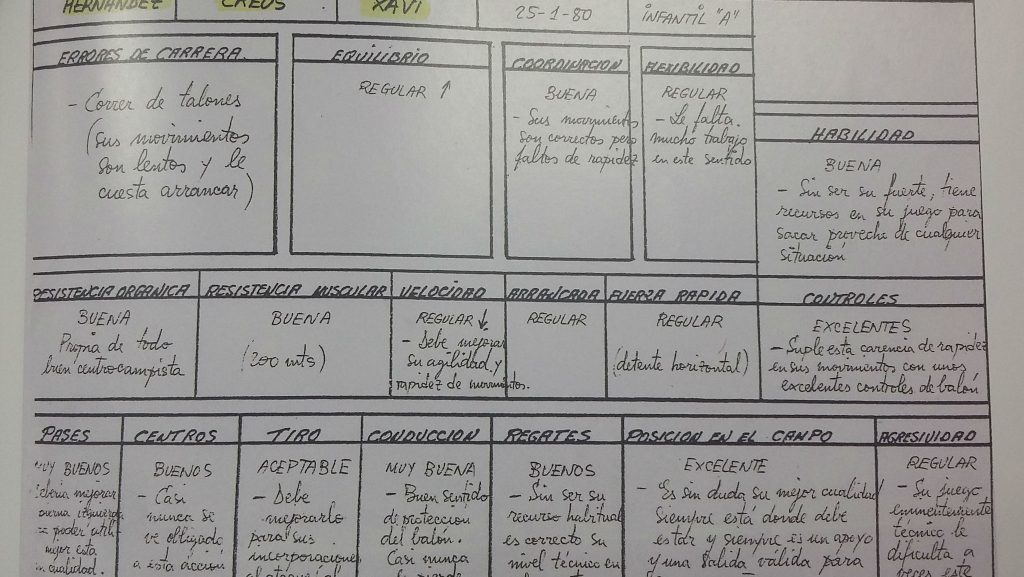 HERNÁNDEZ CREUS XAVI 25-1-80 INFANTIL "A"
ERRORES DE CARRERA.
- Correr de talones
(sus movimientos
son lentos y le
cuesta arrancar)
EQUILIBRIO
REGULAR ↑
COORDINACION
BUENA
- Sus movimientos
son correctos pero
faltos de rapidez
FLEXIBILIDAD
REGULAR
- Le falta
mucho trabajo
en este sentido
HABILIDAD
BUENA
- Sin ser su fuerte, tiene
recursos en su juego para
sacar provecho de cualquier
situación
RESISTENCIA ORGANICA
BUENA
Propia de todo
buen centrocampista
RESISTENCIA MUSCULAR
BUENA
(200 mts)
VELOCIDAD
REGULAR ↓
- Debe mejorar
su agilidad y
rapidez de movimientos.
ARRANCADA
REGULAR
FUERZA RAPIDA
REGULAR
(detente horizontal)
CONTROLES
EXCELENTES
- Suple esta carencia de rapidez
en sus movimientos con unos
excelentes controles de balón
PASES
MUY BUENOS
debería mejorar
pierna izquierda
poder
mejor esta
cualidad.
CENTROS
BUENOS
- Casi
nunca se
ve obligado
a esta acción
TIRO
ACEPTABLE
- Debe
mejorarlo
para sus
incorporaciones
al ataque
CONDUCCION
MUY BUENA
- Buen sentido
de protección
del balón.
Casi nunca
REGATES
BUENOS
- Sin ser su
recurso habitual
es correcto su
nivel técnico en
POSICION EN EL CAMPO
EXCELENTE
- Es sin duda su mejor cualidad
siempre está donde debe
estar y siempre es un apoyo
y una salida válida para
AGRESIVIDAD
REGULAR
- Su juego
eminentemente
técnico le
dificulta a
veces este